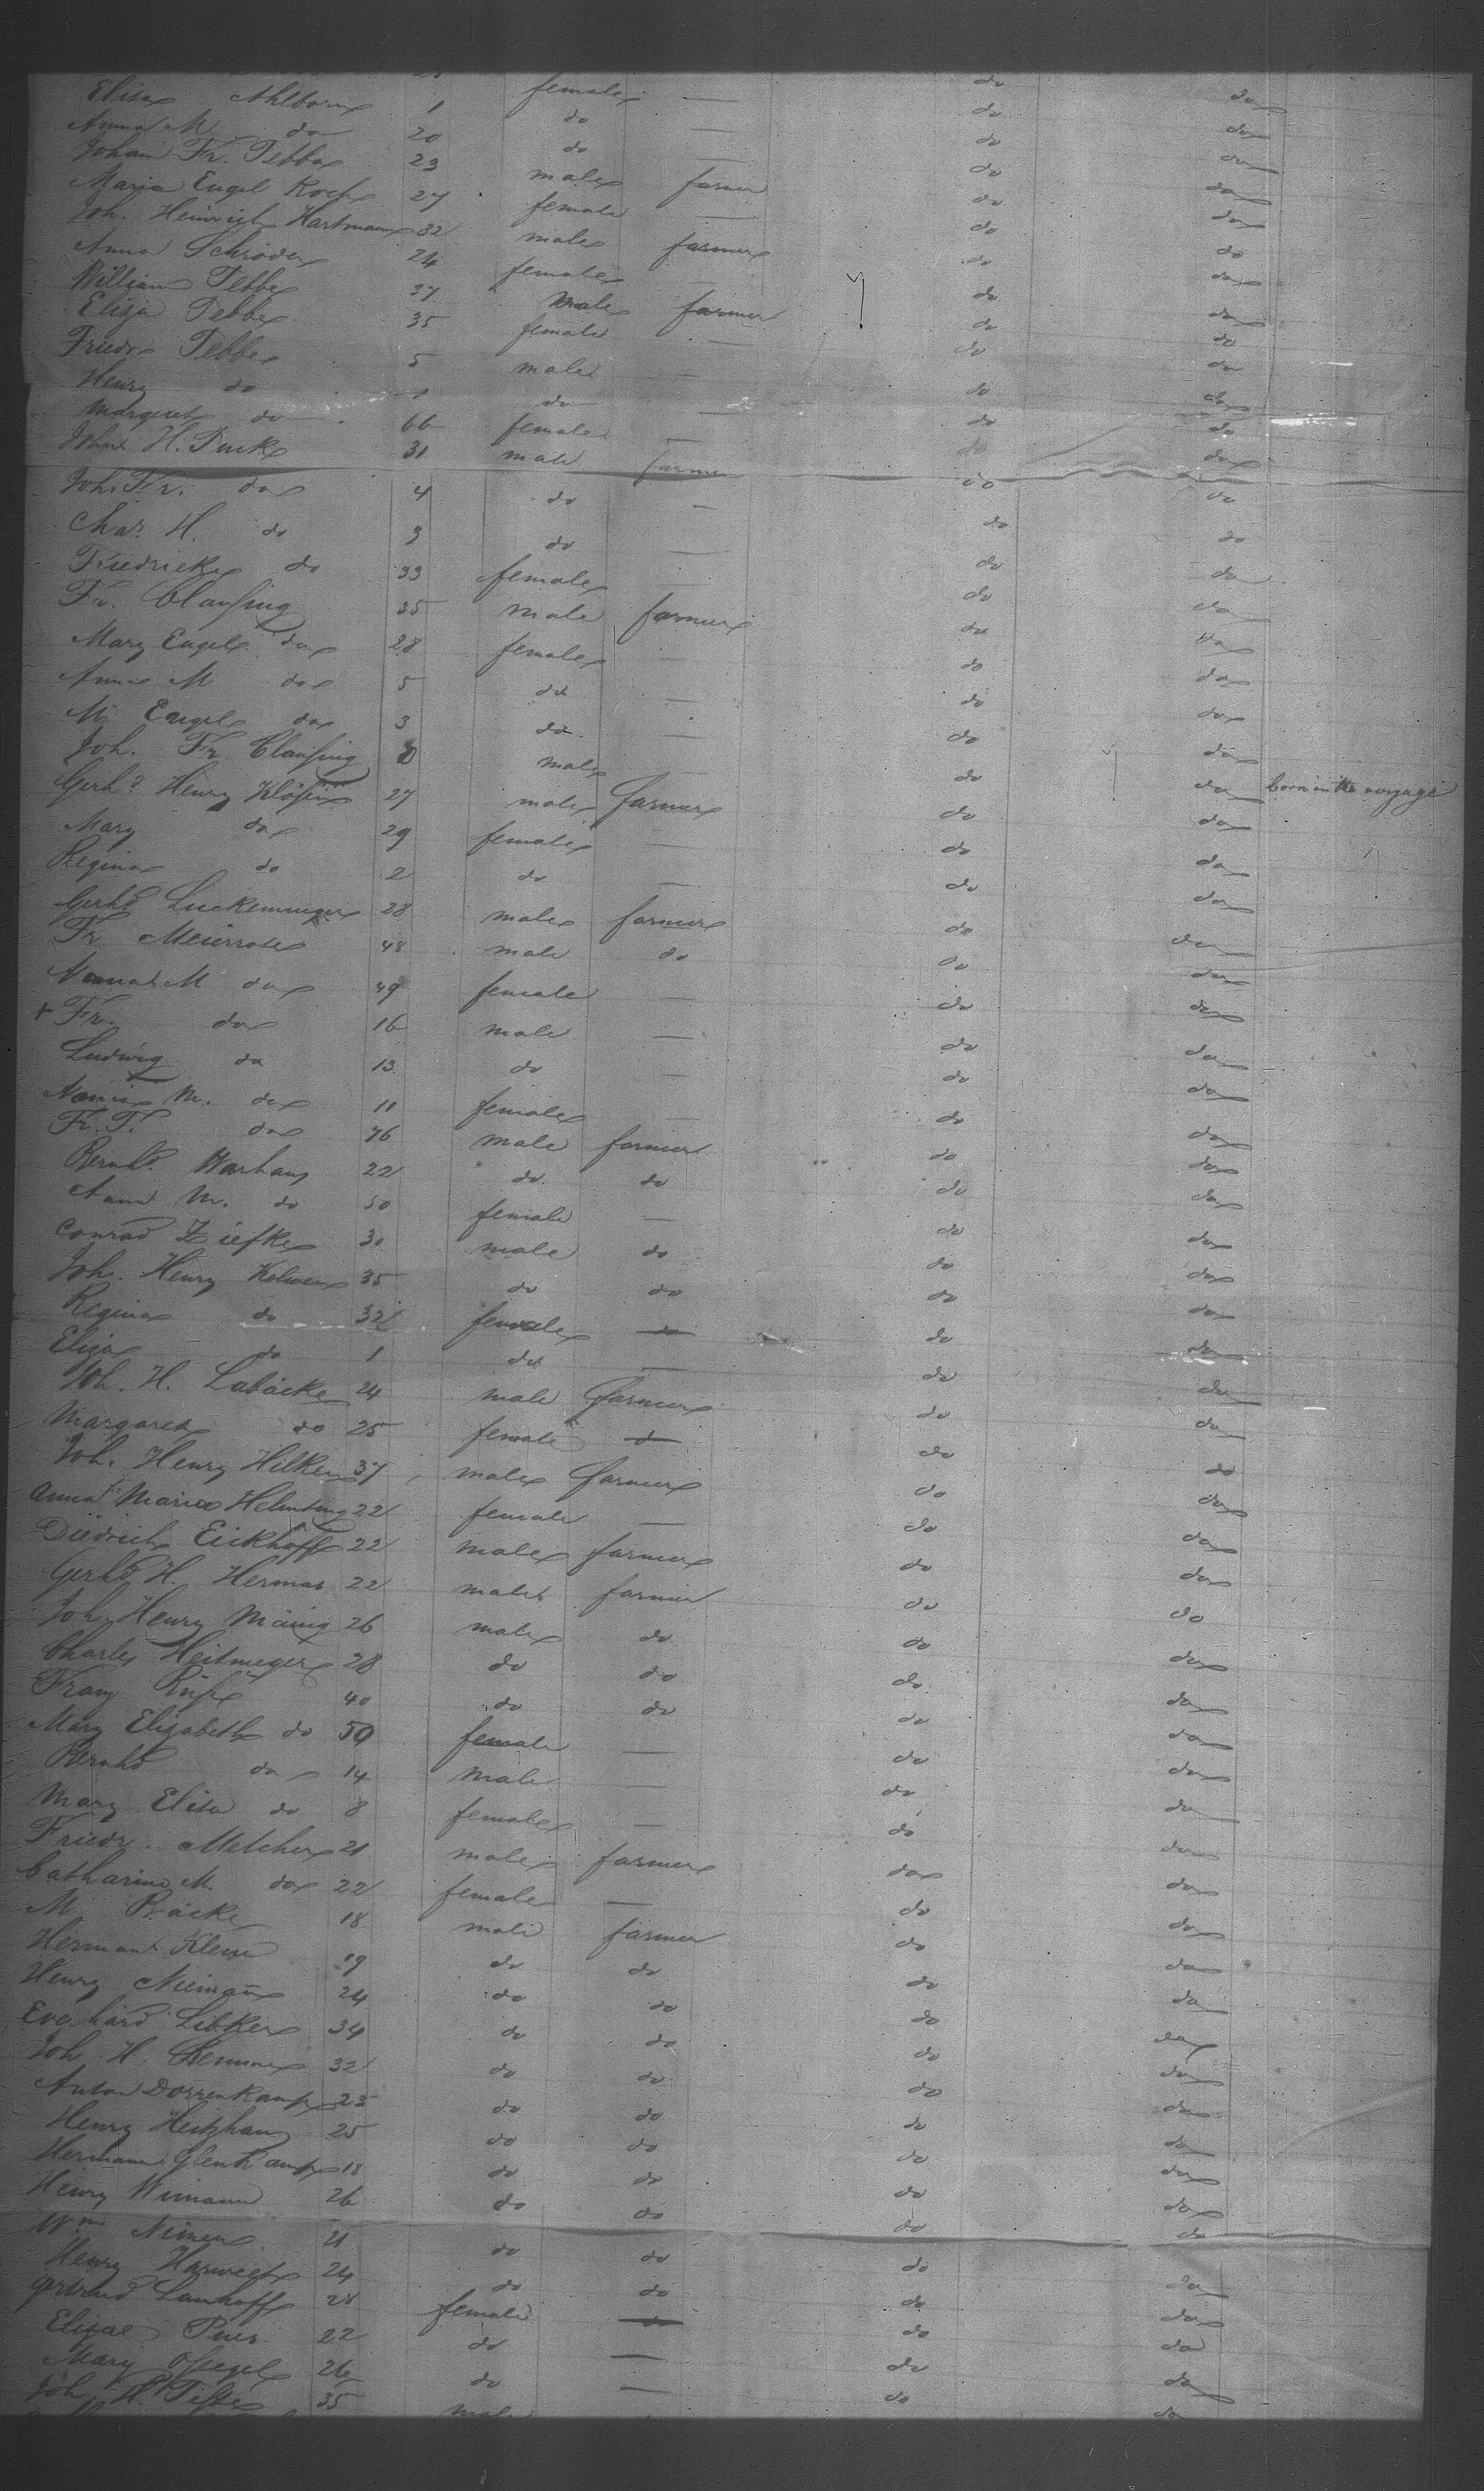 Elisa Ahlborn 1 female — do do
Anna M do 20 do — do do
Johan Fr. Tebbe 23 male farmer do do
Maria Engel Koch 27 female — do do
Joh. Heinrich Hartmann 32 male farmer do do
Anna Schröder 24 female — do do
William Tebbe 37 male farmer do do
Eliza Tebbe 35 female — do do
Friedr Tebbe 5 male — do do
Henry do do — do do
Margaret do 66 female — do do
John H. 31 male farmer do do
Joh. Fr. do 4 do — do do
Char H. do 3 do — do do
Friedrieke do 33 female — do do
Fr. Claußing 35 male farmer do do
Mary Engel do 28 female — do do
Anna M do 5 do — do do
M. Engel do 3 do — do do
Joh. Fr. Claußing 0 male — do do born on the voyage
Gerhd Henry 27 male farmer do do
Mary do 29 female — do do
Regina do 2 do — do do
Gerhd Luckemeyer 28 male farmer do do
Fr. Meierrose 48 male do do do
M do 49 female — do do
+ Fr. do 16 male — do do
Ludwig do 13 do — do do
M. do 11 female — do do
Fr. T. do 76 male farmer do do
Bernhd Warhaus 22 do do do do
Anna M. do 50 female — do do
Conrad Ziefke 30 male do do do
Joh. Henry 35 do do do do
Regina do 32 female do do do
Eliza do 1 do — do do
Joh. H. Labäcke 24 male farmer do do
Margaret do 25 female do do do
Joh. Henry Hilken 37 male farmer do do
Anna Maria 22 female — do do
Diedrich Eickhoff 22 male farmer do do
Gerhd H. Hermas 22 male farmer do do
Joh. Henry 26 male do do do
Charles Heitmeyer 28 do do do do
Franz 40 do do do do
Mary Elizabeth do 50 female — do do
Bernhd do 14 male — do do
Mary Elisa do 8 female — do do
Friedr. Melcher 21 male farmer do do
Catharine M. do 22 female — do do
M. Bäcke 18 male farmer do do
Hermann Klein 19 do do do do
Henry Niemann 24 do do do do
Everhard Libker 34 do do do do
Joh. H. 32 do do do do
Anton Dorrenkamp 23 do do do do
Henry Heitzhaus 25 do do do do
Hermann Glenkamp 18 do do do do
Henry Wimann 26 do do do do
Wm 21 do do do do
Henry Harweg 24 do do do do
Gertrud Lanhoff 28 female do do do
Elizae 22 do — do do
Mary 26 do — do do
Joh. H. 35 male do do